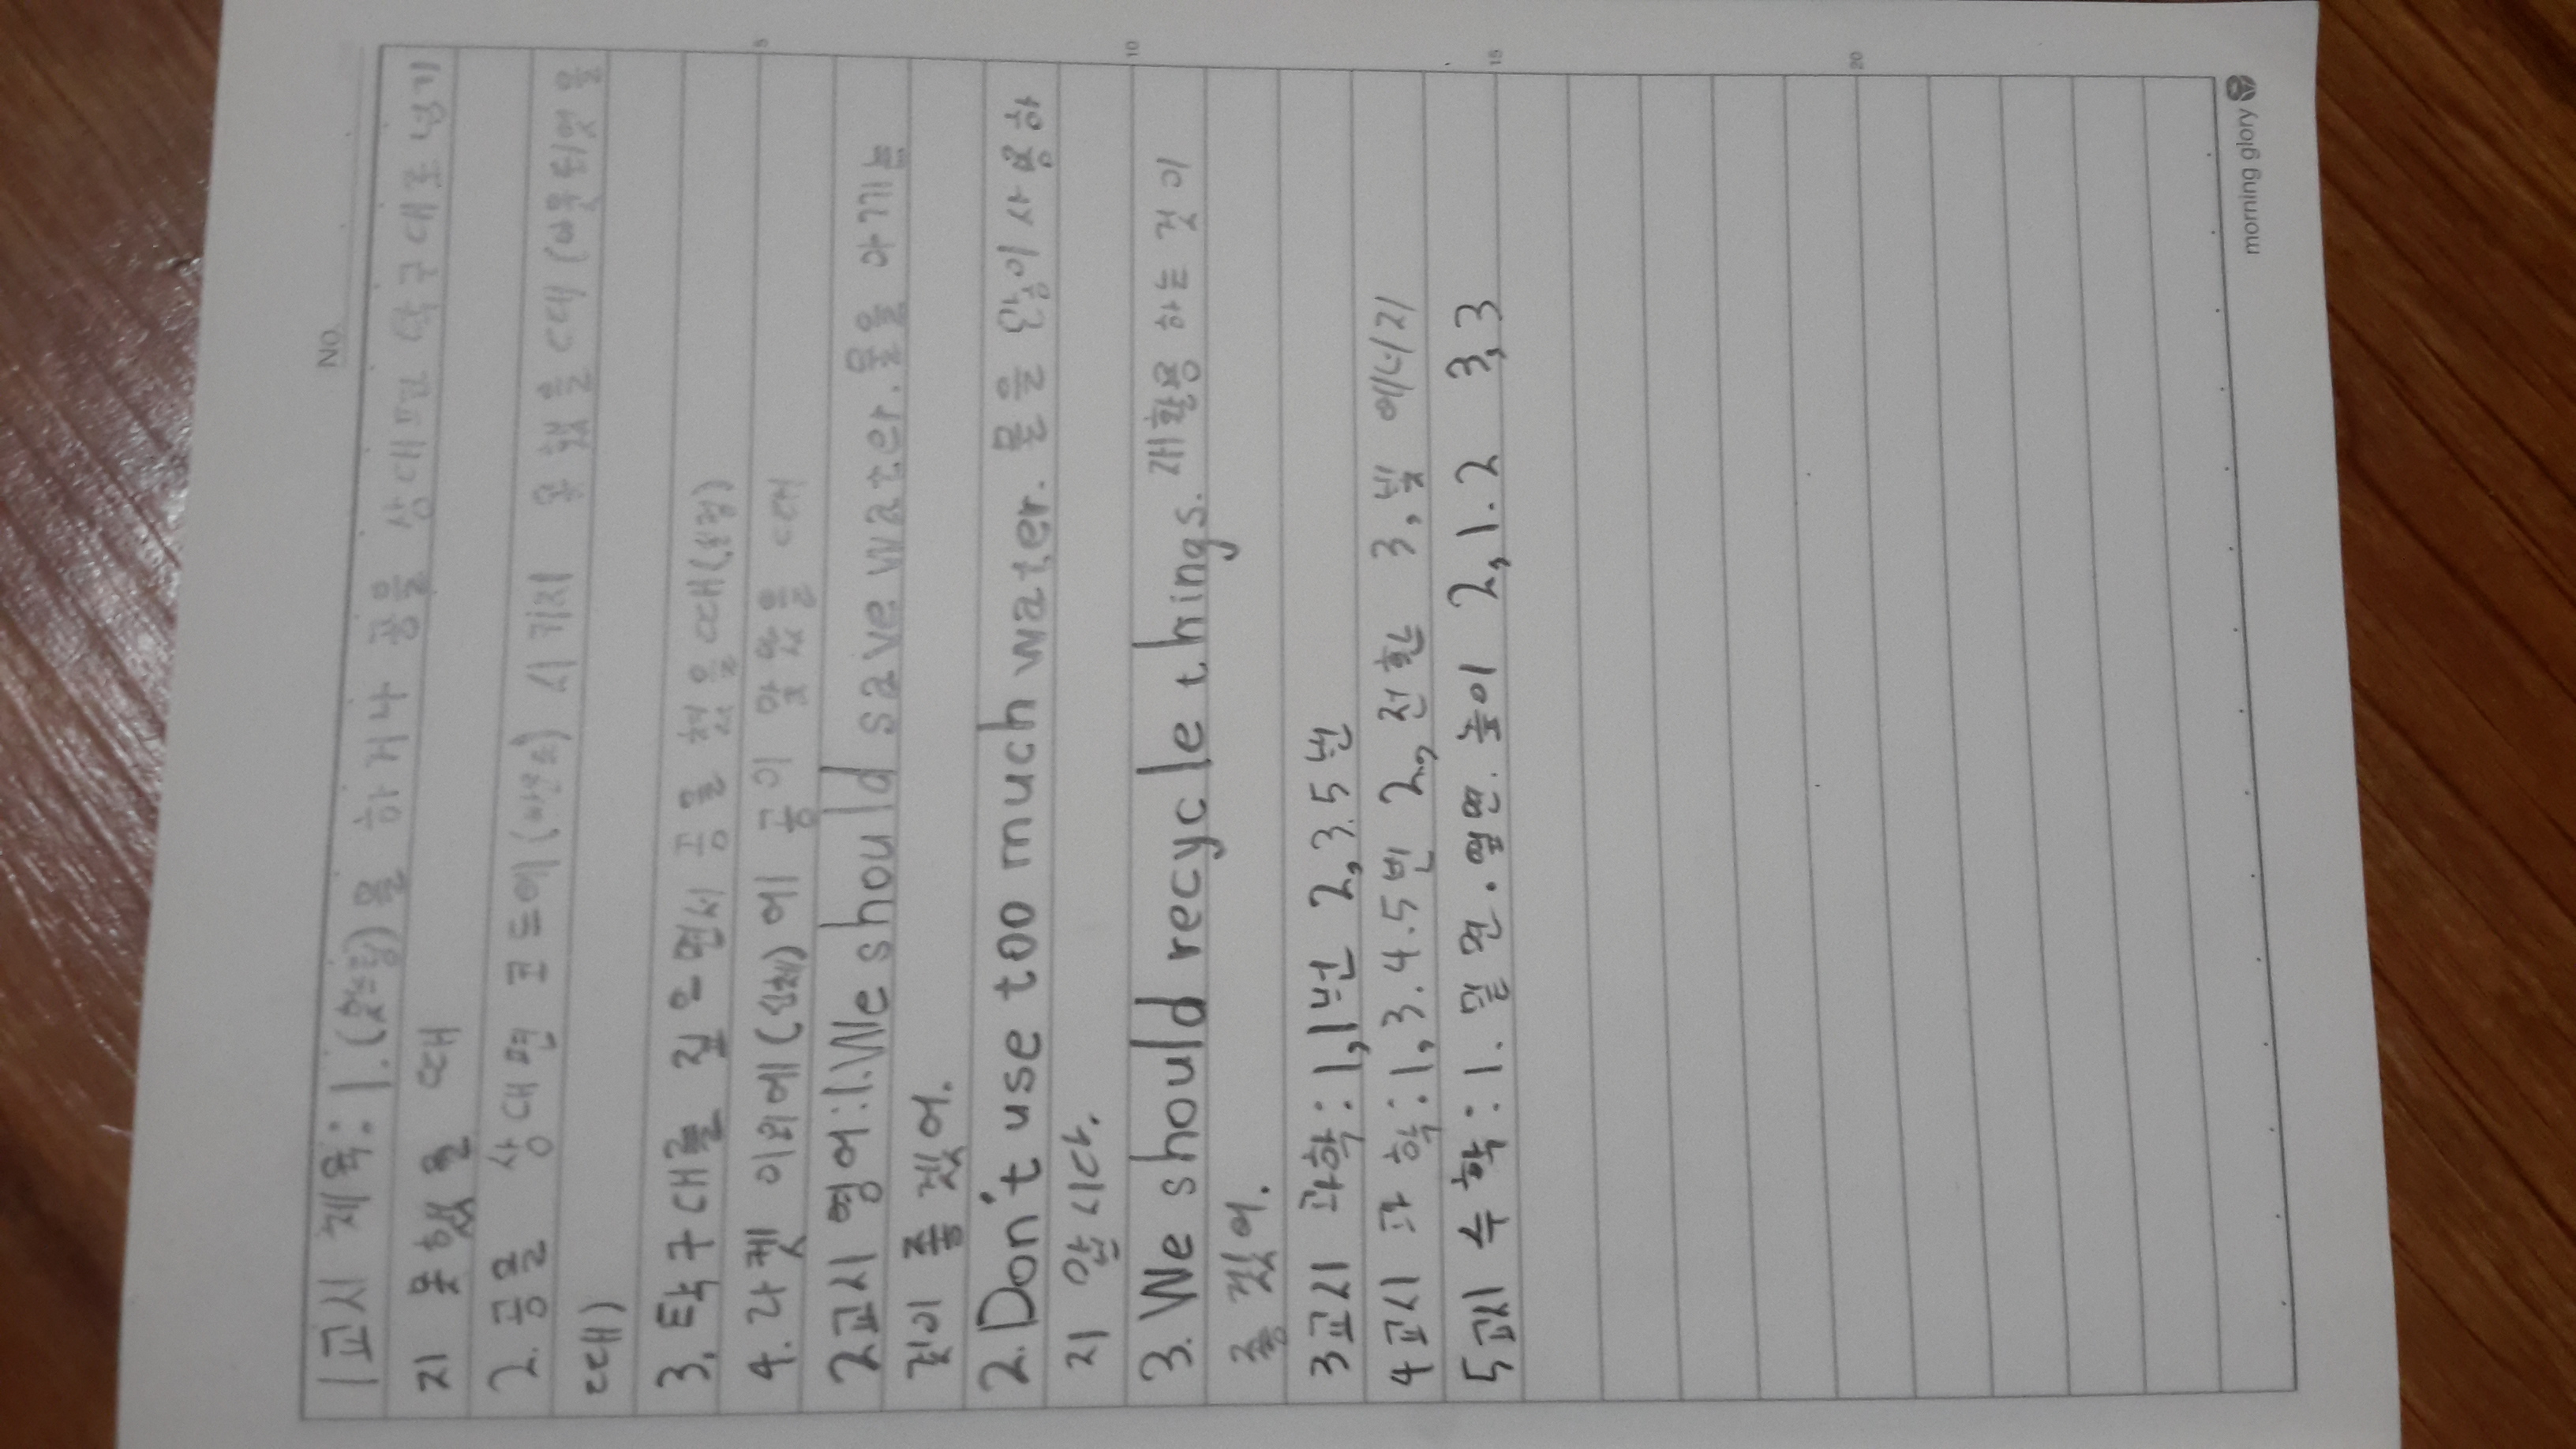 No.
1교시 체육: 1.(헛스윙)을 하거나 공을 상대편 탁구대로 넘기
지 못했을 때
2. 공을 상대편 코트에(바운드) 시키지 못 했을 때(아웃되었을
때)
3. 탁구대를 짚으면서 공을 쳤을 때(실점)
4. 라켓 이외에(신체)에 공이 맞았을 때
2교시 영어:1.We should save water.물을 아끼는
것이 좋겠어.
2.Don't use too much water. 물을 많이 사용하
지 맙시다.
3. We should recycle things. 재활용 하는 것이
좋겠어.
3교시 과학: 1,1번 2,3.5번
4교시 과학: 1,3.4.5번 2,전환 3,빛 에너지
5교시 수학: 1. 밑면.옆면.높이 2,1.2 3,3
5
10
15
20
morning glory